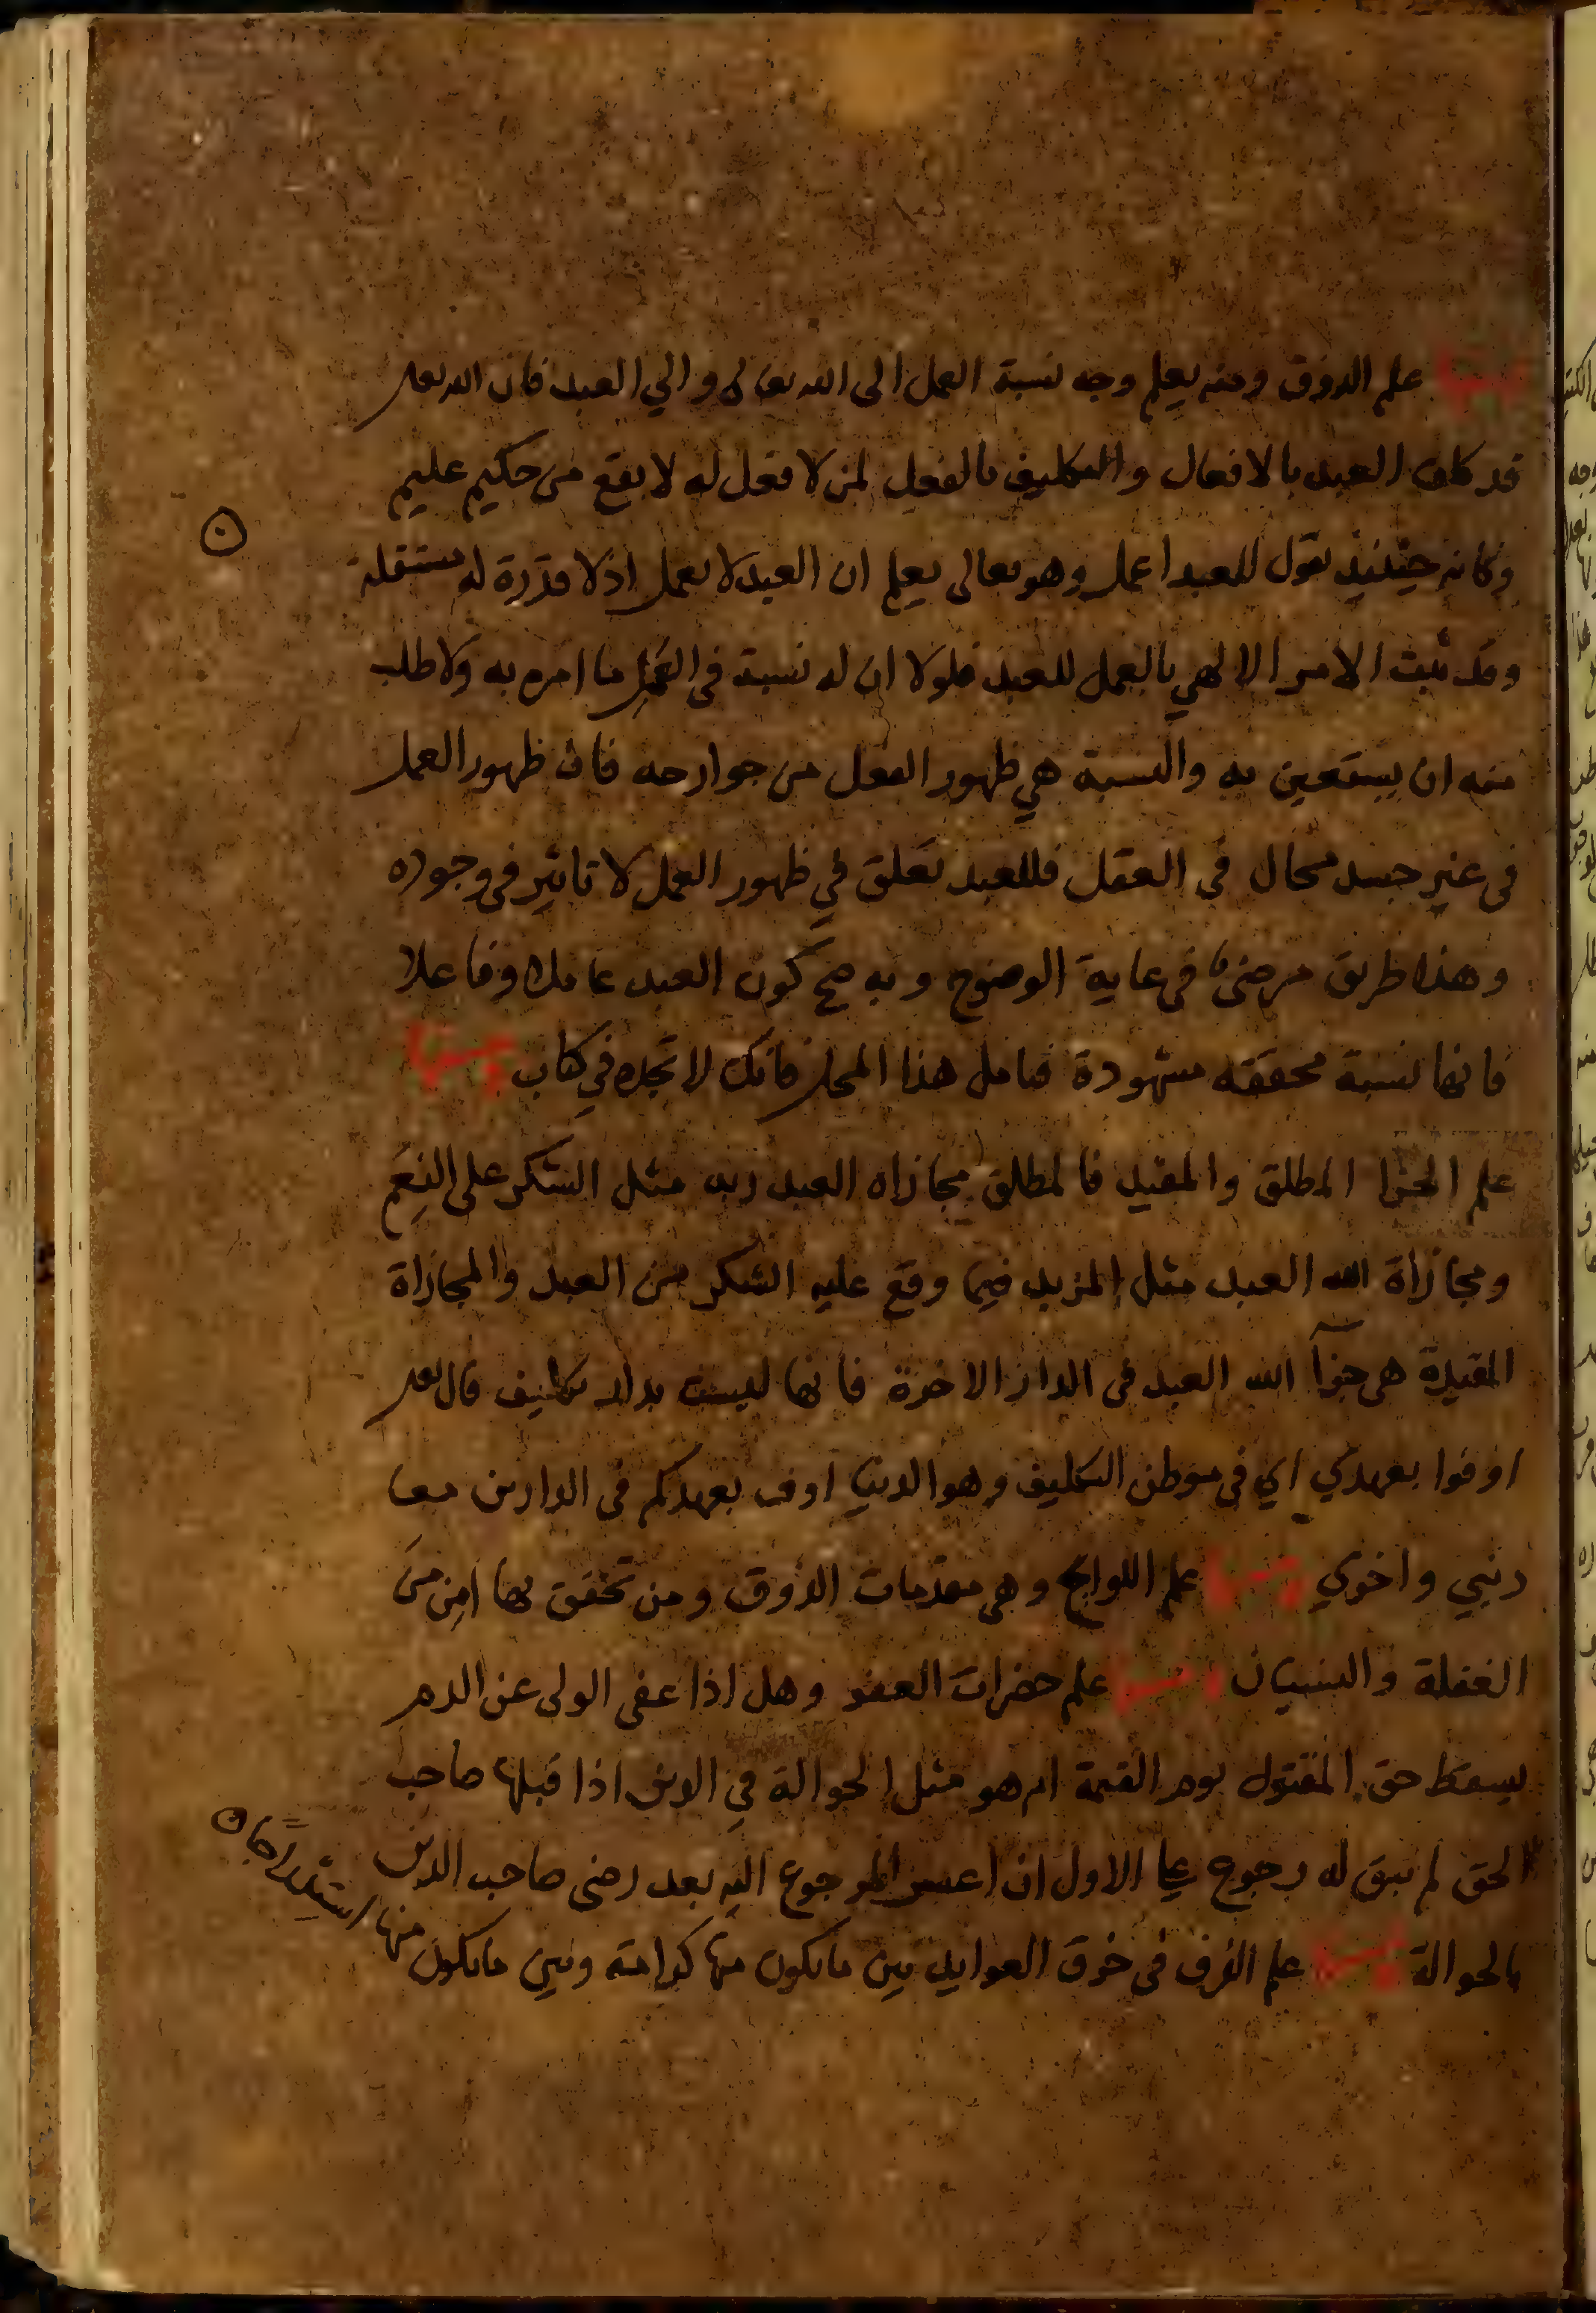 ومنها علم الذوق ومنه يعلم وجه نسبة العمل الى الله تعالى والي العبد فان الله تعلى
قد كلف العبد بالافعال والتكليف بالفعل لمن لا فعل له لا يقع من حكيم عليم
وكانه حينئذ يقول للعبد اعمل وهو تعالى يعلم ان العبد لا يعمل اذ لا قدرة له مستقلة
وقد ثبت الامر الالهي بالعمل للعبد فلولا ان له نسبة في العمل ما امره به ولا طلب
منه ان يستعين به والنسبة هي ظهور الفعل من جوارحه فان ظهور العمل
في غير جسد محال في العقل فللعبد تعلق في ظهور العمل لا تاثير في وجوده
وهذا طريق مرضي في غاية الوضوح وبه صح كون العبد عاملا وفاعلا
فانها نسبة محققه مشهودة فتامل هذا المحل فانك لا تجده في كتاب ومنها
علم الجزا المطلق والمقيد فالمطلق مجازاه العبد ربه مثل الشكر على النعم
ومجازاة الله العبد مثل المزيد فيما وقع عليه الشكر من العبد والمجازاة
المقيدة هي جزآ الله العبد في الدار الاخرة فانها ليست بدار تكليف قال تعلى
اوفوا بعهدي اي في موطن التكليف وهو الدنيا اوف بعهدكم في الدارين معا
دنيي واخري ومنها علم اللوايح وهي مقدمات الذوق ومن تحقق بها امن من
الغفلة والنسيان ومنها علم حضرات العفو وهل اذا عفى الولى عن الدم
يسقط حق المقتول يوم القيمة ام هو مثل الحوالة في الدين اذا قبلها صاحب
الحق لم يبق له رجوع على الاول ان اعسر المرجوع اليه بعد رضى صاحب الدين
بالحوالة ومنها علم الفرق في خرق العوايد بين ما يكون منها كرامة وبين ما يكون منها استدراجا